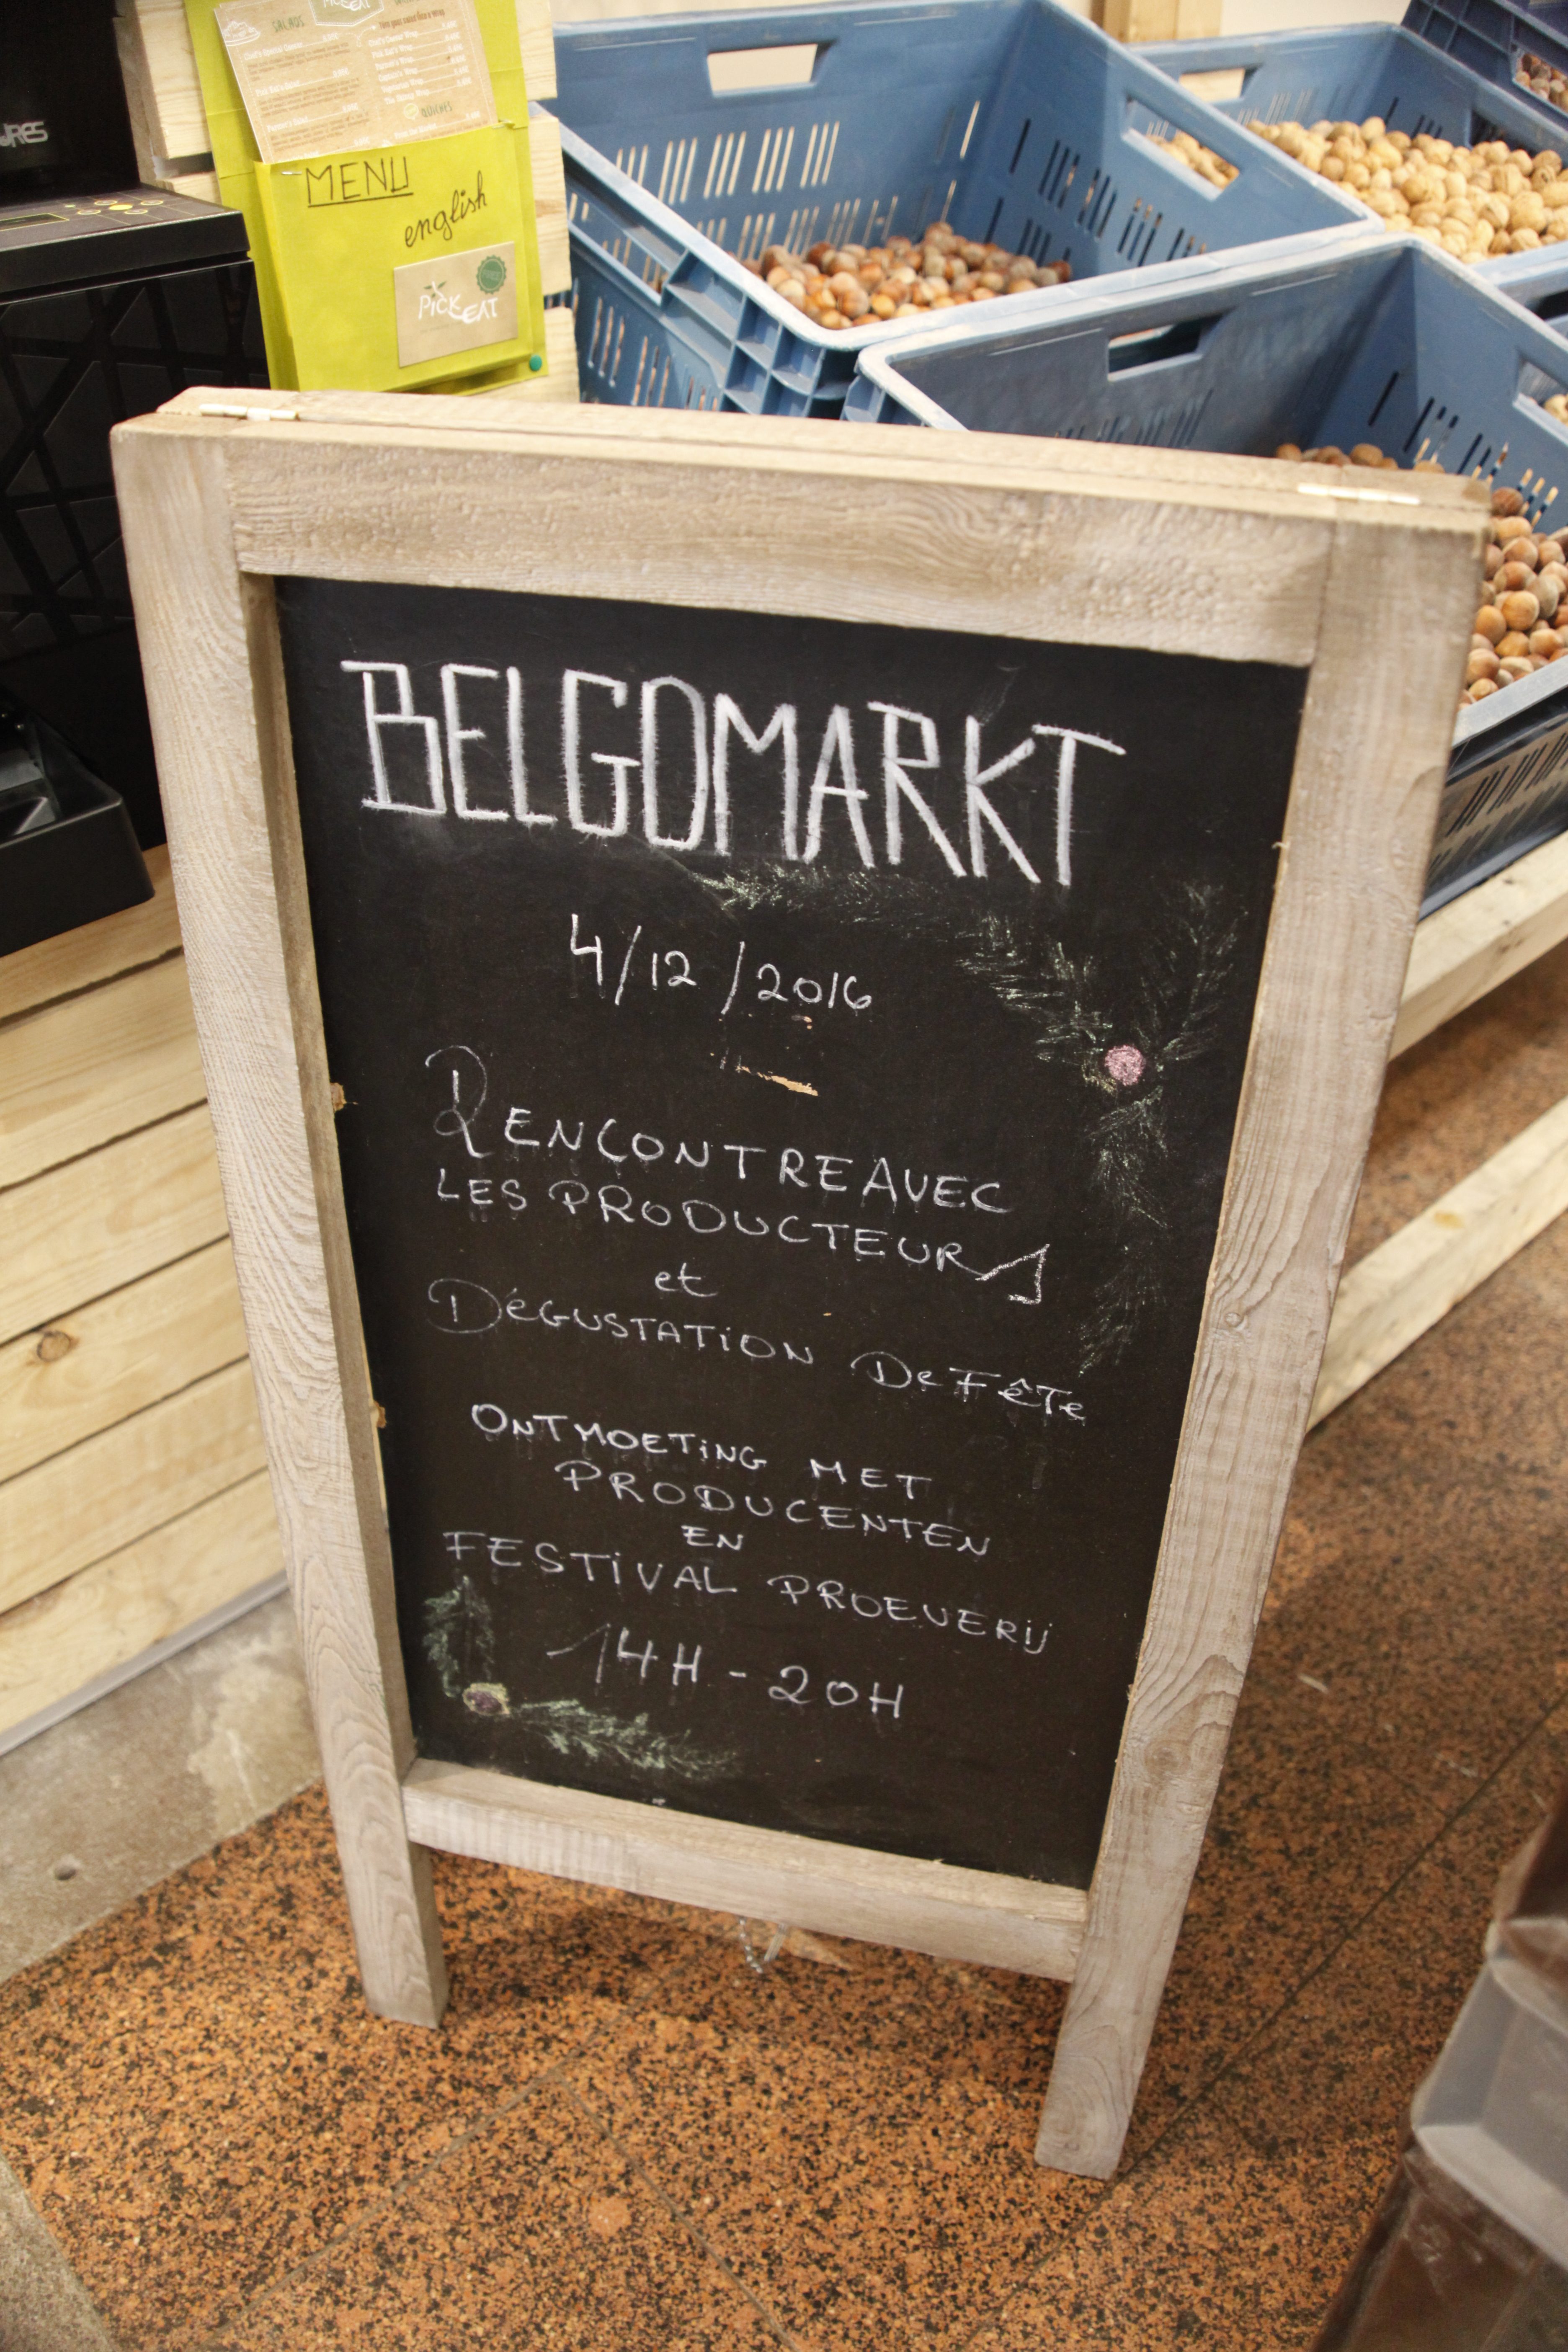 SALADS
QUICHES
URES
MENU
english
PICK EAT
BELGOMARKT
4/12/2016
RENCONTRE AVEC
LES PRODUCTEURS
et
DéGUSTATiON De FêTe
ONTMOETiNG MET
PRODUCENTEN
EN
FESTiVAL PROEVERij
14H - 20H